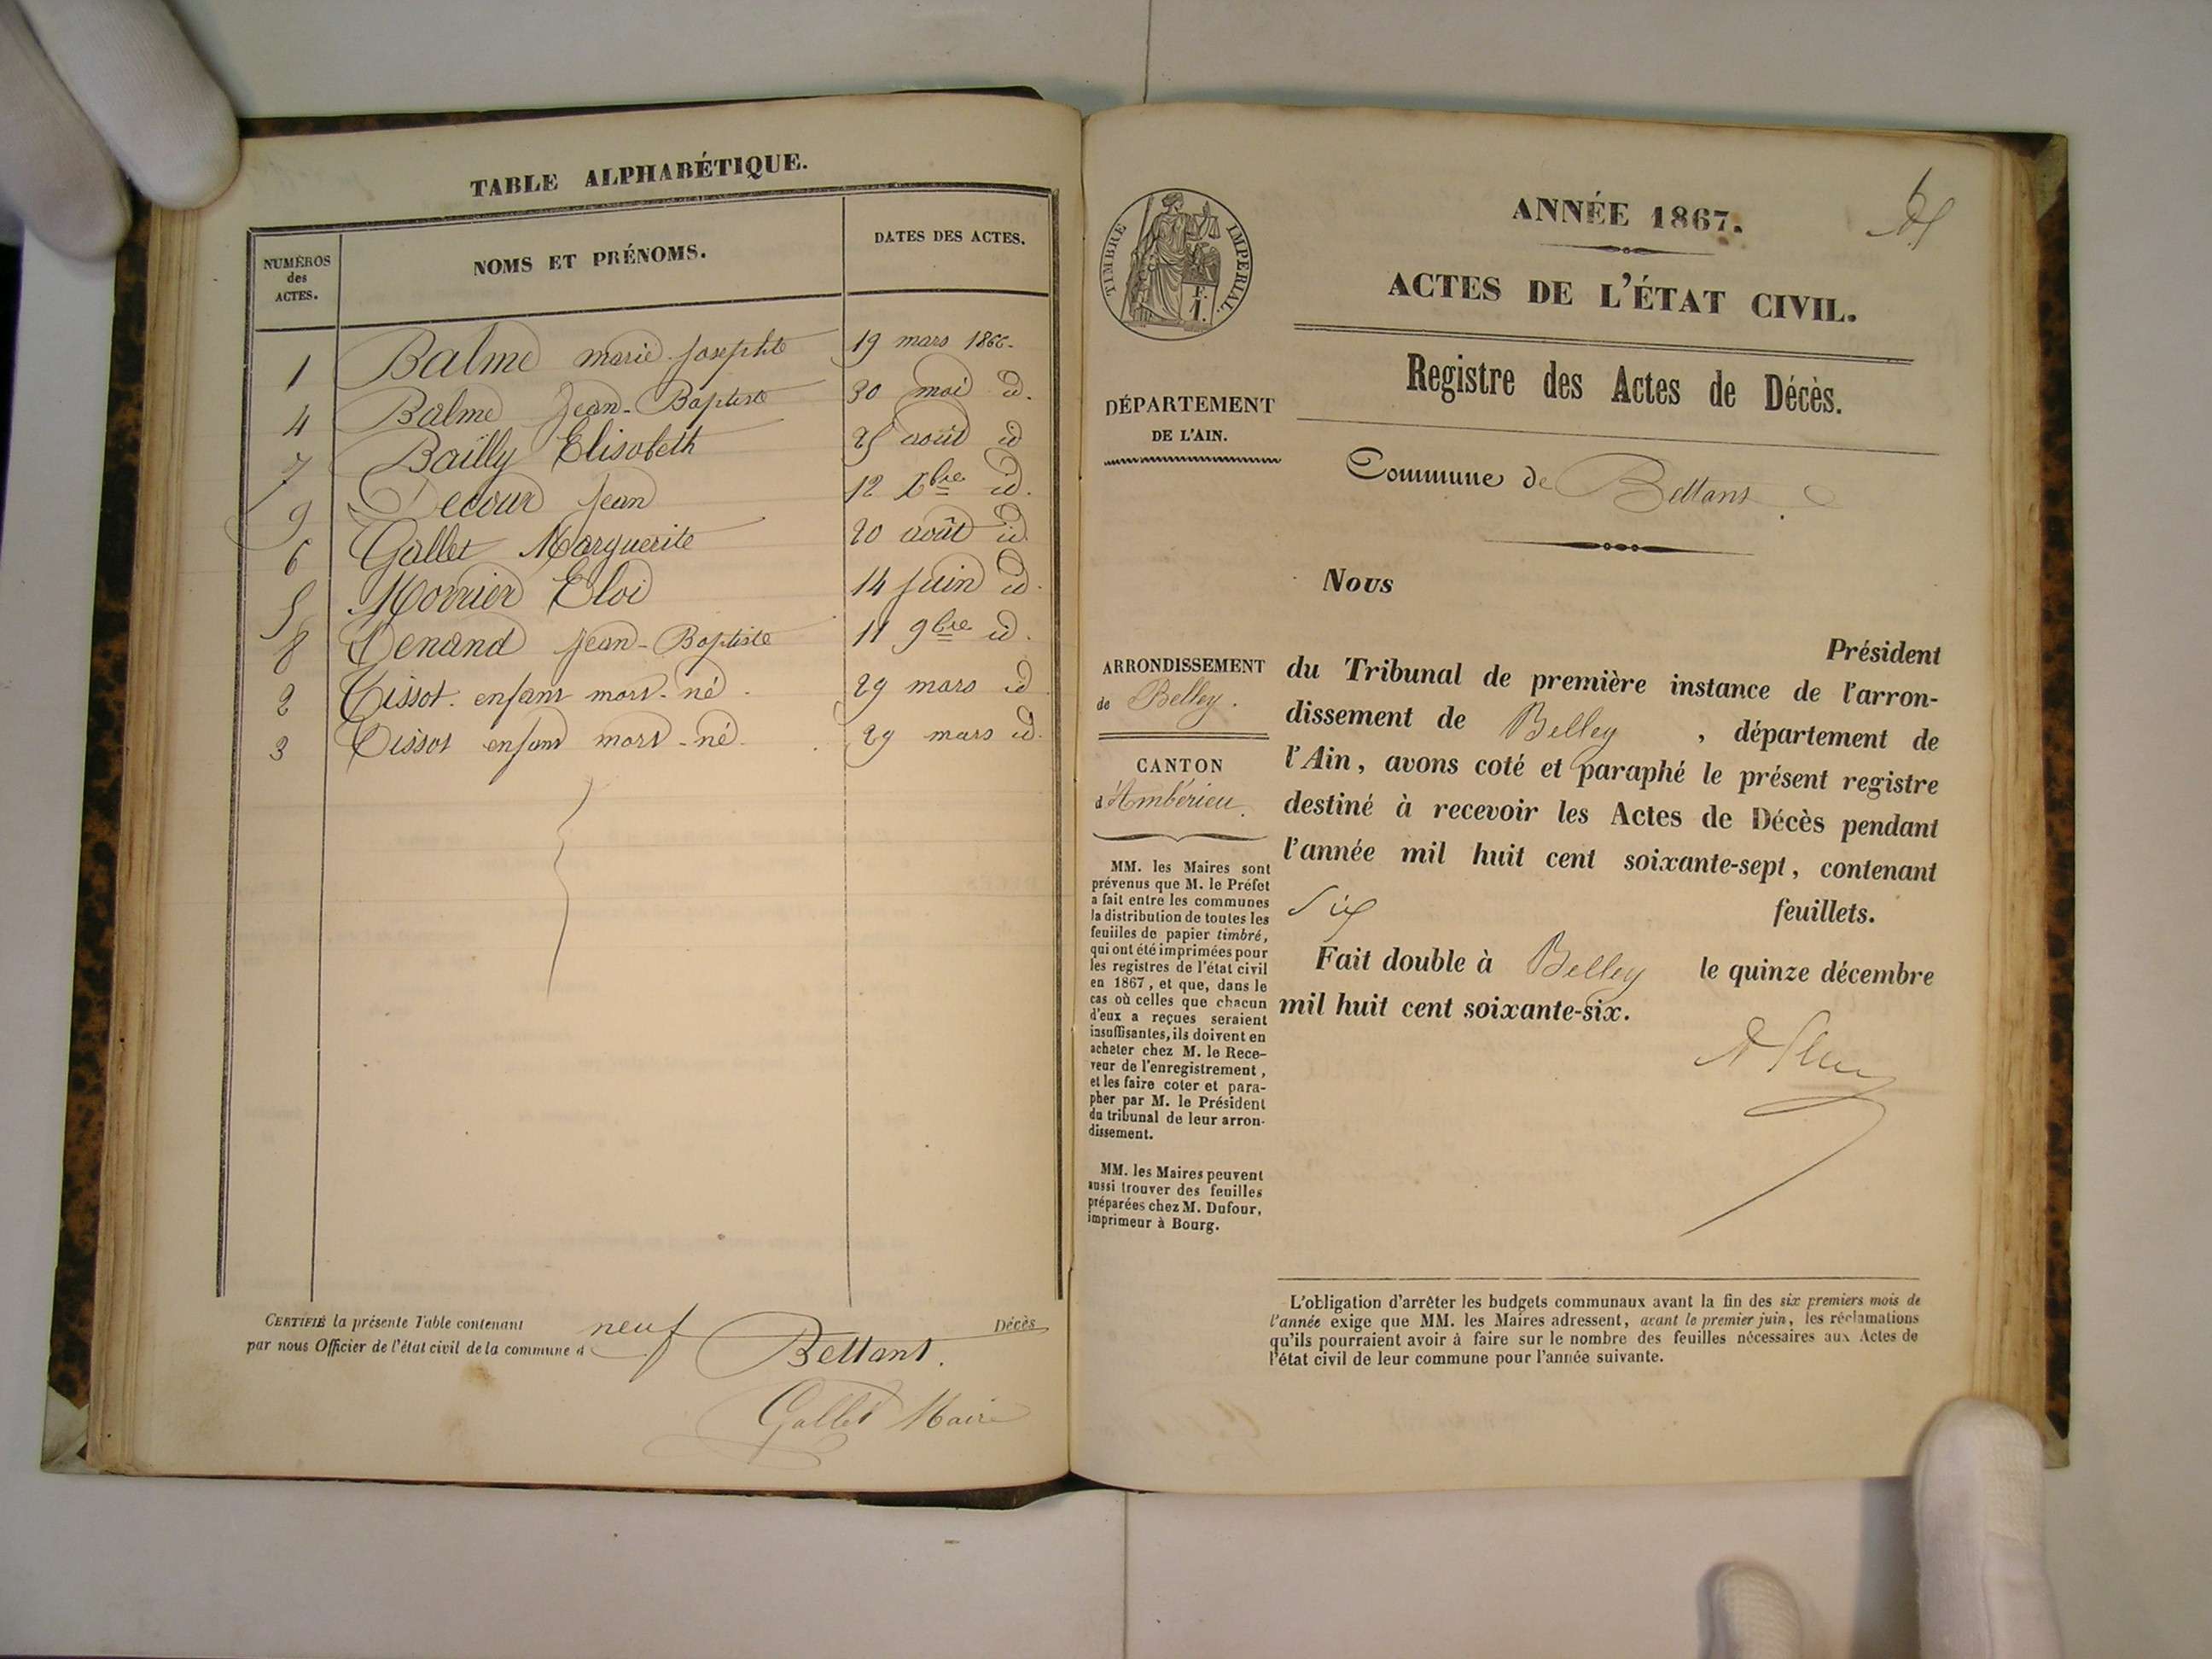 TABLE ALPHABÉTIQUE.
NUMÉROS des ACTES.
NOMS ET PRÉNOMS.
DATES DES ACTES.
1 Balme marie Josephte 19 mars 1866.
4 Balme Jean-Baptiste 30 mai id.
7 Bailly Elisabeth 25 août id
9 Decour Jean 12 Xbre id.
6 Gallet Marguerite 20 août id.
5 Morrier Eloi 14 juin id.
8 Jean-Baptiste 11 9bre id.
2 Tissot enfant mort-né. 29 mars id
3 Tissot enfant mort-né. 29 mars id.
CERTIFIÉ la présente Table contenant neuf Décès
par nous Officier de l'état civil de la commune d Bettant.
Gallet Maire
TIMBRE IMPERIAL.
F.
1.
ANNÉE 1867.
ACTES DE L'ÉTAT CIVIL.
Registre des Actes de Décès.
DÉPARTEMENT
DE L'AIN.
Commune de Bettans.
Nous
Président
ARRONDISSEMENT
de Belley.
CANTON
d'Ambérieu.
du Tribunal de première instance de l'arron-
dissement de Belley, département de
l'Ain, avons coté et paraphé le présent registre
destiné à recevoir les Actes de Décès pendant
l'année mil huit cent soixante-sept, contenant
Six feuillets.
Fait double à Belley le quinze décembre
mil huit cent soixante-six.
MM. les Maires sont
prévenus que M. le Préfet
a fait entre les communes
la distribution de toutes les
feuilles de papier timbré,
qui ont été imprimées pour
les registres de l'état civil
en 1867, et que, dans le
cas où celles que chacun
d'eux a reçues seraient
insuffisantes, ils doivent en
acheter chez M. le Rece-
veur de l'enregistrement,
et les faire coter et para-
pher par M. le Président
du tribunal de leur arron-
dissement.
MM. les Maires peuvent
aussi trouver des feuilles
préparées chez M. Dufour,
imprimeur à Bourg.
L'obligation d'arrêter les budgets communaux avant la fin des six premiers mois de
l'année exige que MM. les Maires adressent, avant le premier juin, les réclamations
qu'ils pourraient avoir à faire sur le nombre des feuilles nécessaires aux Actes de
l'état civil de leur commune pour l'année suivante.